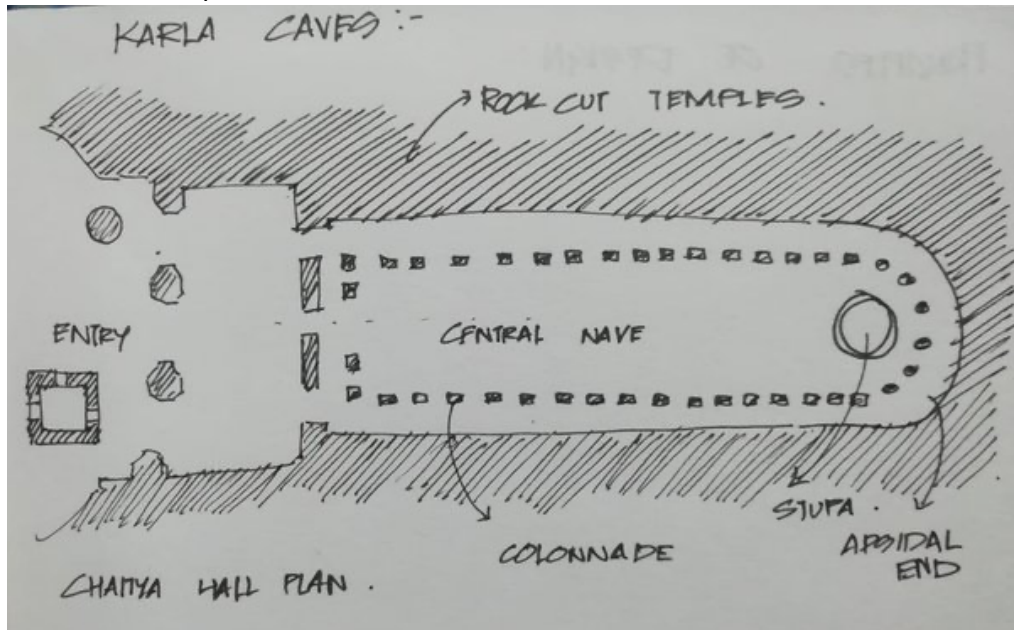 KARLA CAVES :-
ROCK CUT TEMPLES .
ENTRY
CENTRAL NAVE
STUPA .
COLONNADE
APSIDAL
END
CHAITYA HALL PLAN .